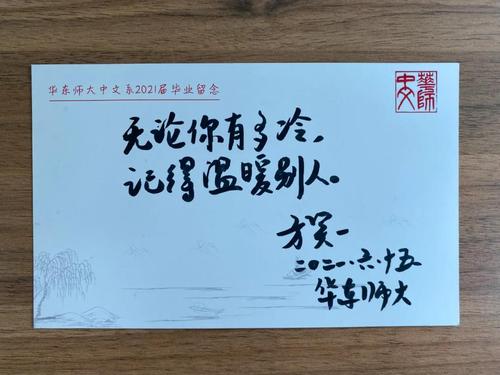 华东师大中文系2021届毕业留念
华师
中文
无论你有多冷，
记得温暖别人。
方笑一
二〇二一.六.十五
华东师大